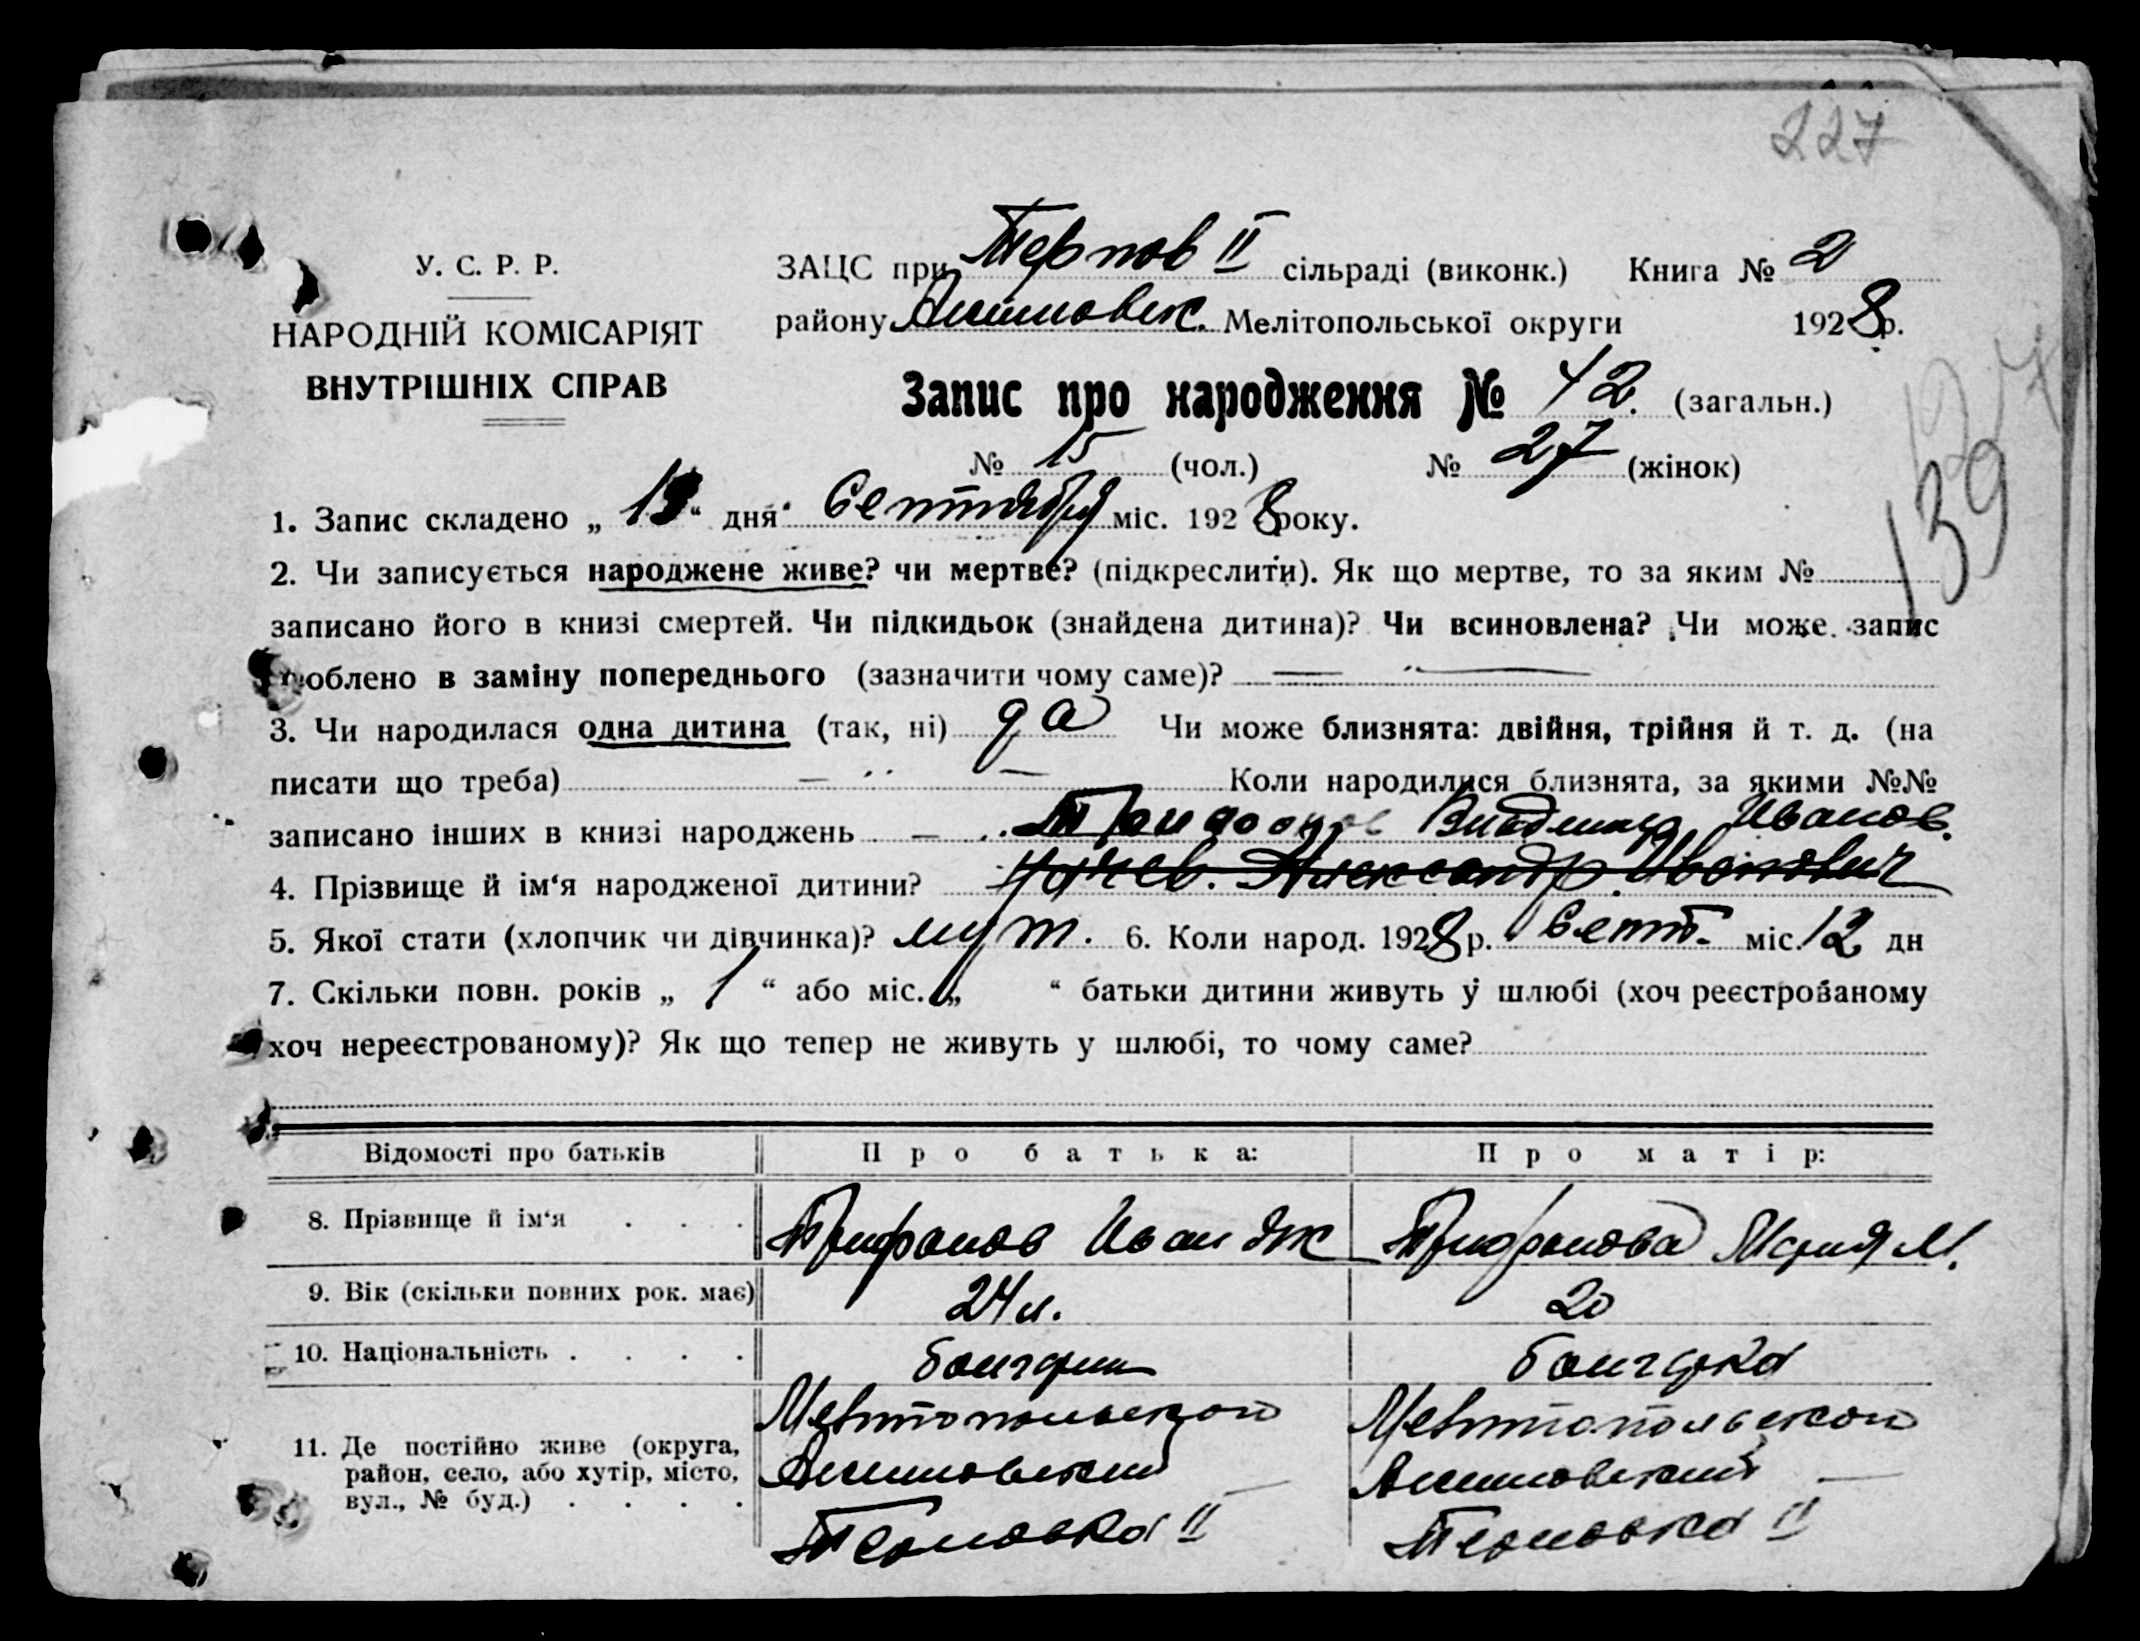 227
У. С. Р. Р.
НАРОДНІЙ КОМІСАРІЯТ
ВНУТРІШНІХ СПРАВ
ЗАЦС при Терпов II сільраді (виконк.) Книга № 2
району Акимовск. Мелітопольської округи 1928 р.
Запис про народження № 42. (загальн.)
№ 15 (чол.) № 27 (жінок)
139
1. Запис складено „ 13 “ дня Сентября міс. 1928 року.
2. Чи записується народжене живе? чи мертве? (підкреслити). Як що мертве, то за яким №
записано його в книзі смертей. Чи підкидьок (знайдена дитина)? Чи всиновлена? Чи може запис
роблено в заміну попереднього (зазначити чому саме)?
3. Чи народилася одна дитина (так, ні) да Чи може близнята: двійня, трійня й т. д. (на
писати що треба) Коли народилися близнята, за якими №№
записано інших в книзі народжень Владимир Иванов.
4. Прізвище й ім‘я народженої дитини? Александр Иванович
5. Якої стати (хлопчик чи дівчинка)? муж. 6. Коли народ. 1928 р. Сент. міс. 12 дн
7. Скільки повн. років „ 1 “ або міс. „ “ батьки дитини живуть у шлюбі (хоч реєстрованому
хоч нереєстрованому)? Як що тепер не живуть у шлюбі, то чому саме?
Відомості про батьків Про батька: Про матір:
8. Прізвище й ім‘я . . . Трифонов Иван Трифонова Мария М.
9. Вік (скільки повних рок. має) 24 л. 20
10. Національність . . . . болгарин болгарка
11. Де постійно живе (округа, район, село, або хутір, місто, вул., № буд.) . . . .
Мелитопольского Мелитопольской
Акимовский Акимовский
II II